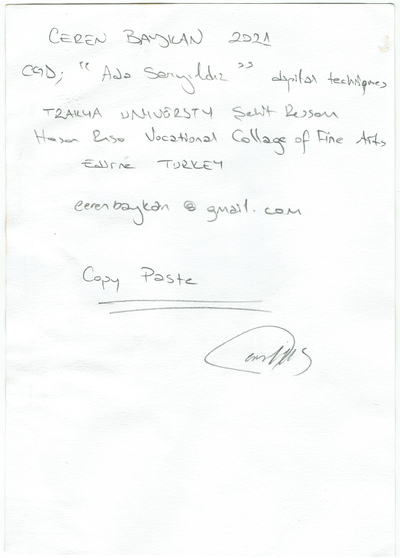 CEREN BAYKAN 2021
CGD; "Ada Sarıyıldız" dıpital techniques
TRAKYA UNIVERSTY Şehit Ressam
Hasan Rıza Vocational Collage of Fine Arts
Edirne TURKEY
cerenbaykan@gmail.com
Copy Paste